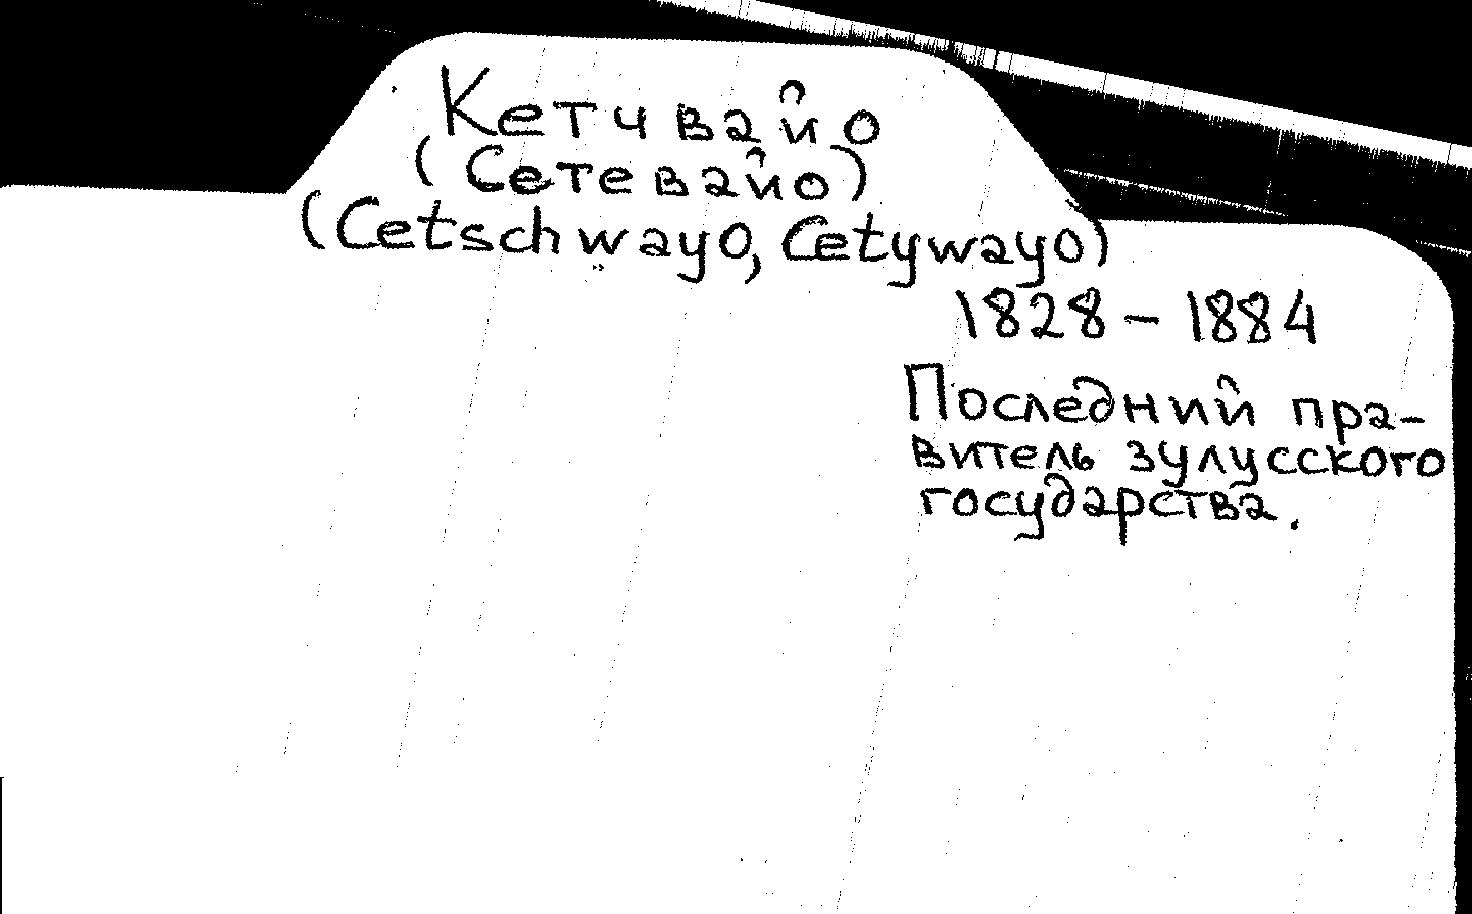 Кетчвайо
(Сетевайо)
(Cetschwayo, Cetywayo)
1828 – 1884
Последний пра-
витель зулусского
государства.